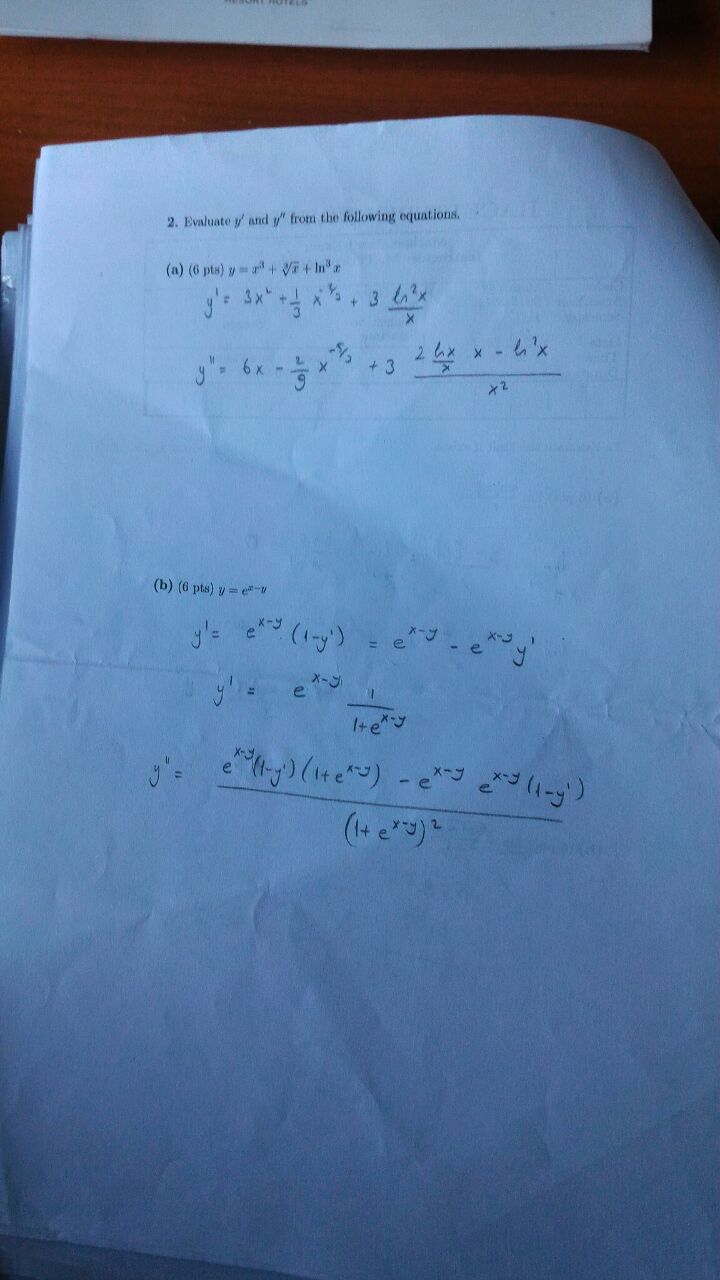 RESORT HOTELS
2. Evaluate y′ and y″ from the following equations.
(a) (6 pts) y = x³ + ∛x + ln³ x
y' = 3x² + 1/3 x^(-2/3) + 3 ln²x/x
y" = 6x - 2/9 x^(-5/3) + 3 (2 lnx/x x - ln²x)/x²
(b) (6 pts) y = e^(x−y)
y' = e^(x-y) (1-y') = e^(x-y) - e^(x-y) y'
y' = e^(x-y) 1/(1+e^(x-y))
y" = (e^(x-y)(1-y')(1+e^(x-y)) - e^(x-y) e^(x-y)(1-y'))/(1+e^(x-y))²